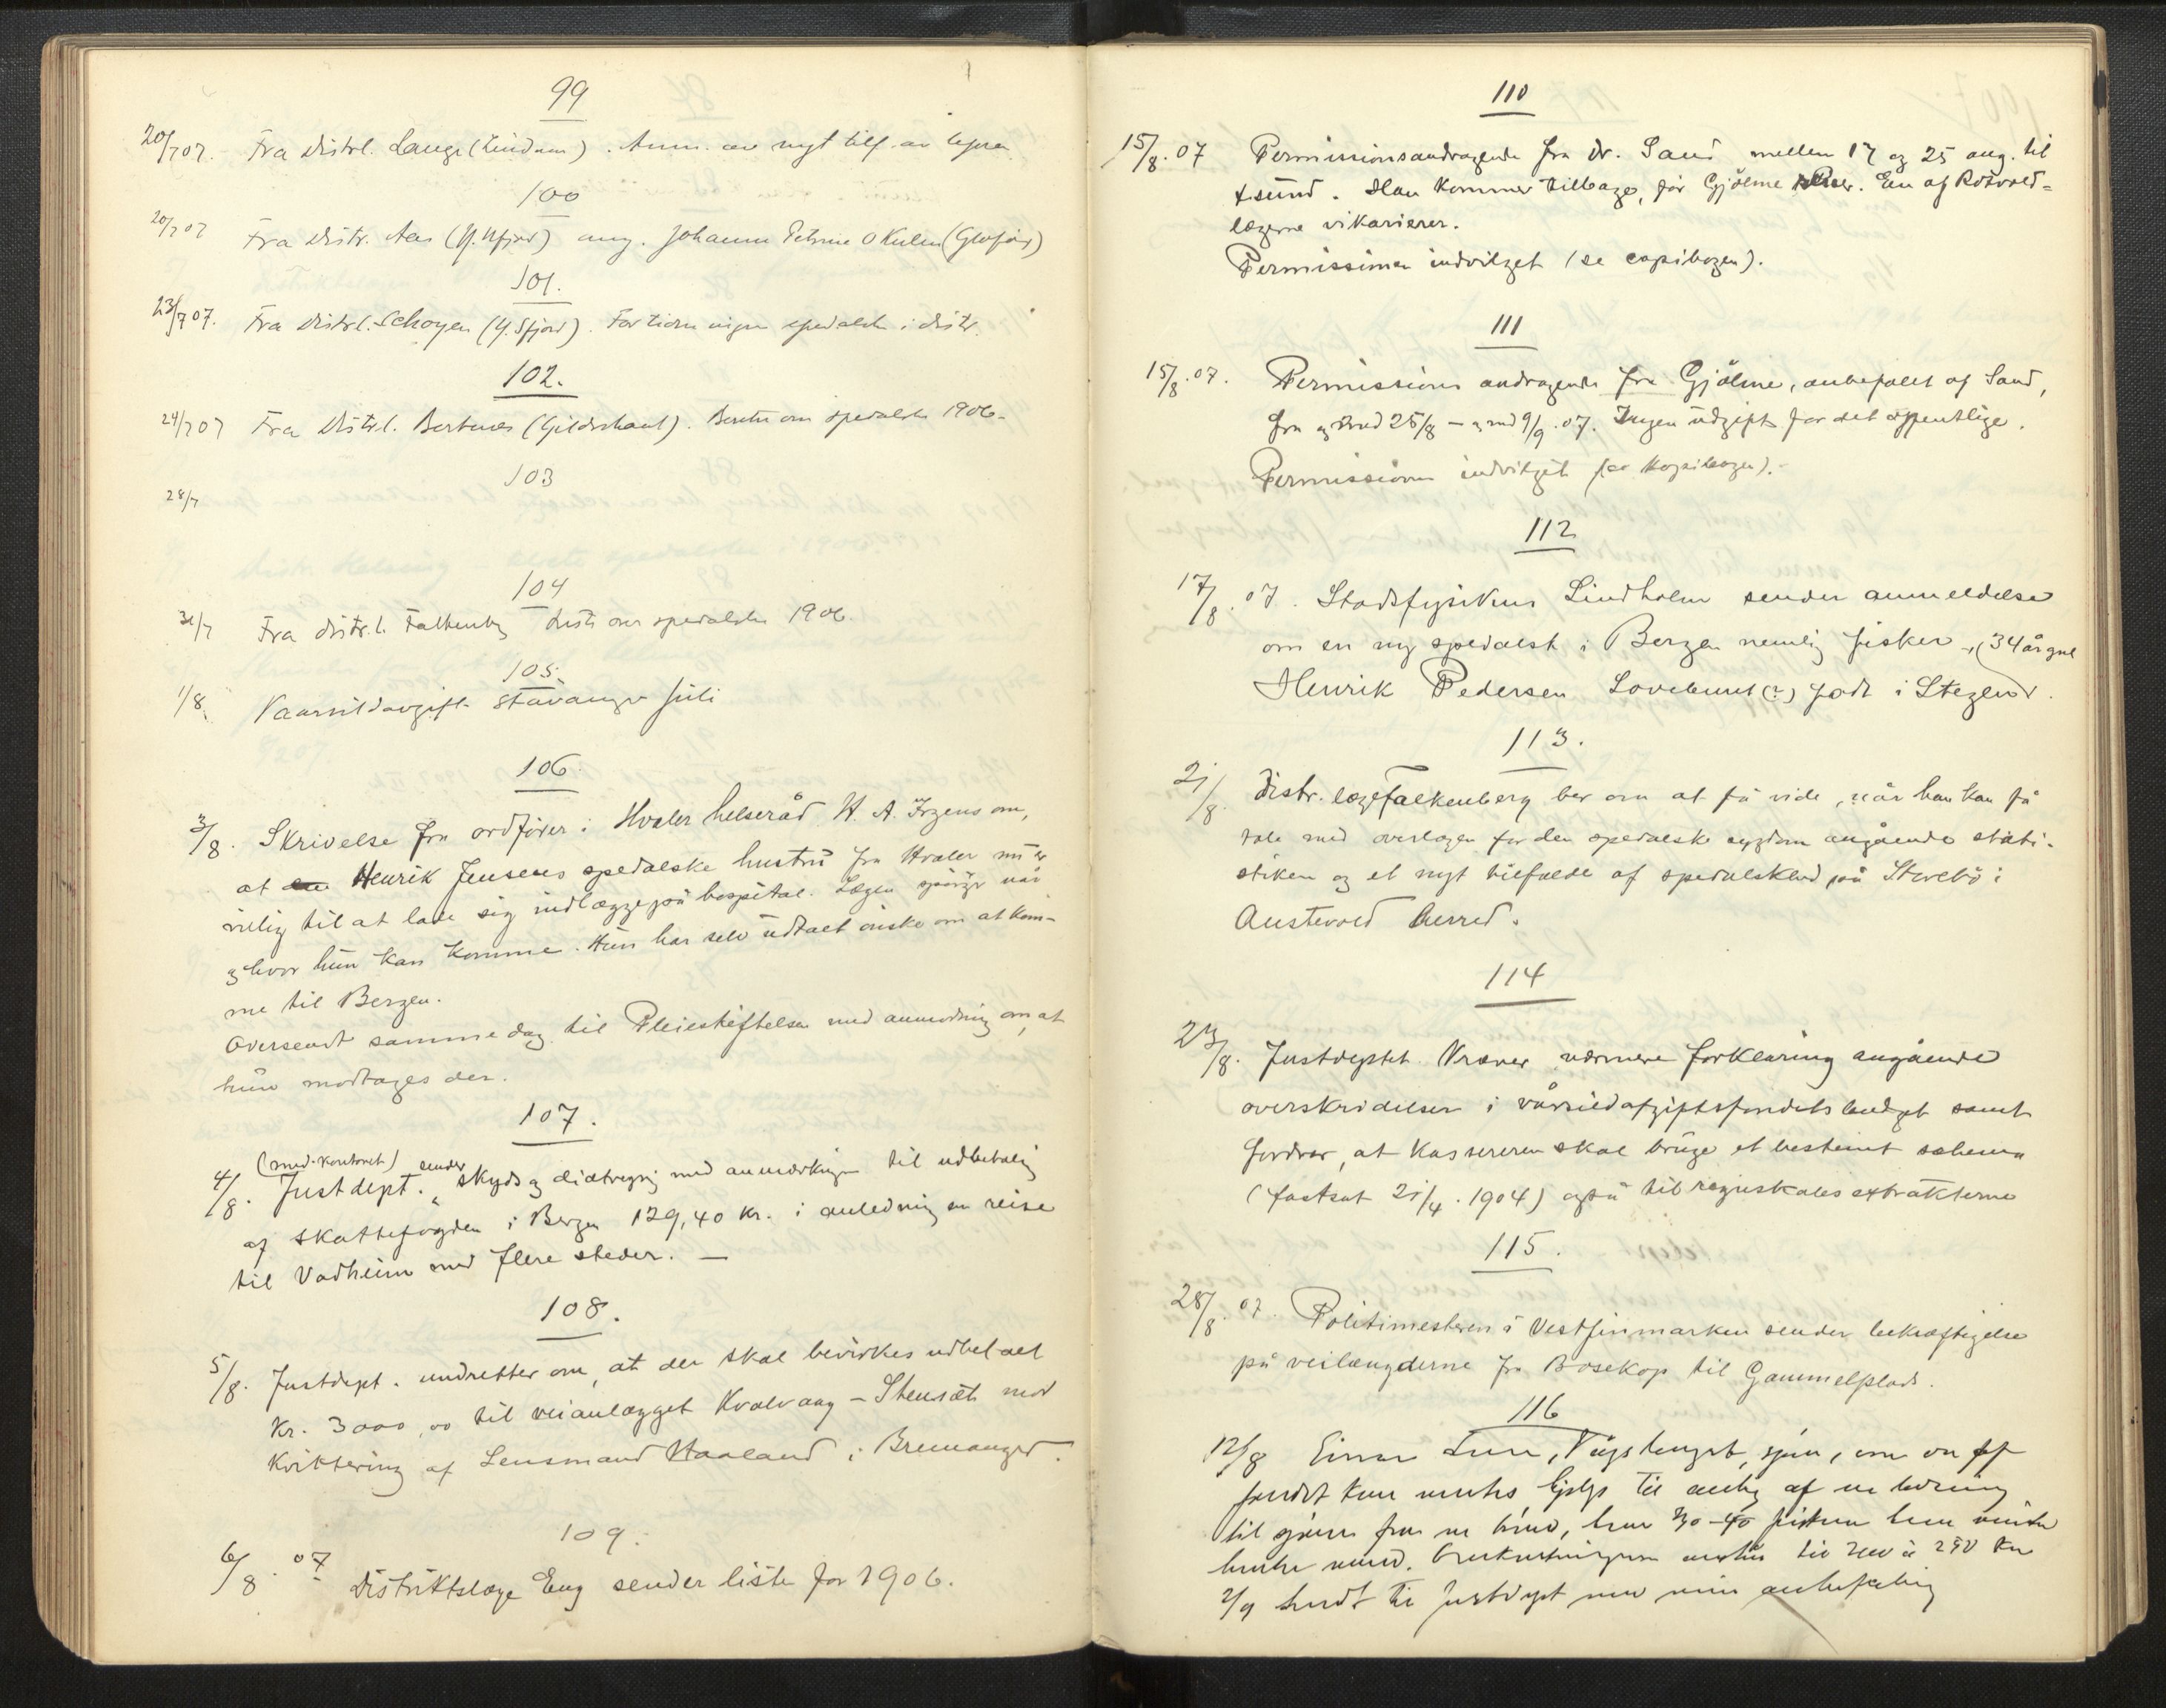 99
20/7 07. Fra distrl. Lange (Lindaas). Anm. av nyt tilf. av lepra
100
20/7 07 Fra distr. Aas ang. Johanne Petrine
101.
23/7 07. Fra distrl. Schoyen spedalske i distr.
102.
24/7 07 Fra distrl. Bertnes (Gildeskaal). spedalske 1906.
103
28/7
104
31/7 Fra distr.l. Falkenberg Liste over spedalske 1906.
105.
1/8. Vaarsildavgift Stavanger Juli
106.
3/8. Skrivelse fra ordfører i Hvaler helseråd H. A. Irgens om,
at Henrik Jensens spedalske hustru fra Hvaler nu er
villig til at lade sig indlægge på hospital. Lægen spörger når
og hvor hun kan komme. Hun har selv udtalt önske om at kom-
me til Bergen.
Oversendt samme dag til Pleiestiftelsen med anmodning om, at
hun modtages der.
107.
(med.kontoret) sender
4/8. Justdept. skyds og diætregng med anmærkninger til udbetaling
af skattefogden i Bergen 129,40 kr. i anledning en reise
til Vadheim med flere steder. —
108.
5/8. Justdept. undretter om, at der skal bevirkes udbetalt
Kr. 3000,00 til veianlægget Kvalvaag – Stensæt mod
kvittering af Lensmand Haaland i Bremanger.
109.
6/8. 07 Distriktslæge Eng sender liste for 1906.
110
15/8. 07 Permissionsandragende fra dr. Sand mellem 17 og 25 aug. til
X.sund. Han kommer tilbage, før Gjölme reiser. En af Rotvold-
lægerne vikarierer.
Permissionen indvilget (se copibogen).
111
15/8. 07. Permissions andragende fra Gjölme, anbefalet af Sand,
fra og med 25/8 – og med 9/9. 07. Ingen udgift for det offentlige.
Permissionen indvilget (se kopibogen).
112
17/8. 07. Stadsfysikus Lindholm sender anmeldelse
om en ny spedalsk i Bergen nemlig fisker (34 år gml
Henrik Pedersen Lovebunt (?) født i Stegen.
113.
21/8. Distr. læge Falkenberg ber om at få vide, når han kan få
tale med overlægen for den spedalske sygdom angående stati-
stiken og et nyt tilfælde af spedalskhed på Storebö i
Austevold herred.
114
23/8. Justdeptet kræver nærmere forklaring angående
overskridelser i vårsildafgiftsfondets budget samt
fordrer, at kassereren skal bruge et bestemt schema
(fastsat 21/4. 1904) også til regnskabsextrakterne
115.
28/8. 07. Politimesteren i Vestfinmarken sender bekræftigelse
på veilængderne fra Bosekop til Gammelplads.
116
12/8 Einar
til
30–40
til 200 à 250 Kr
2/9 sendt til Justdept med min anbefaling